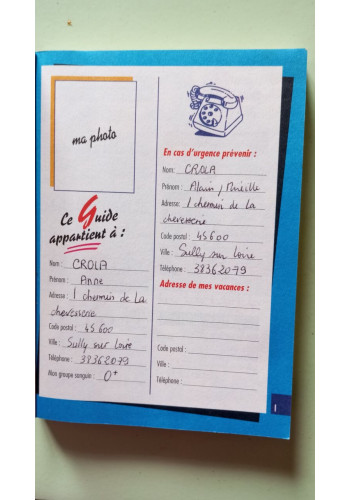 ma photo
Ce Guide
appartient à :
Nom : CROLA
Prénom : Anne
Adresse : 1 chemin de la
chevesserie
Code postal : 45600
Ville : Sully sur Loire
Téléphone : 38362079
Mon groupe sanguin : O+
En cas d'urgence prévenir :
Nom: CROLA
Prénom : Alain / Mireille
Adresse: 1 chemin de la
chevesserie
Code postal : 45600
Ville : Sully sur Loire
Téléphone : 38362079
Adresse de mes vacances :
Code postal :
Ville :
Téléphone :
1